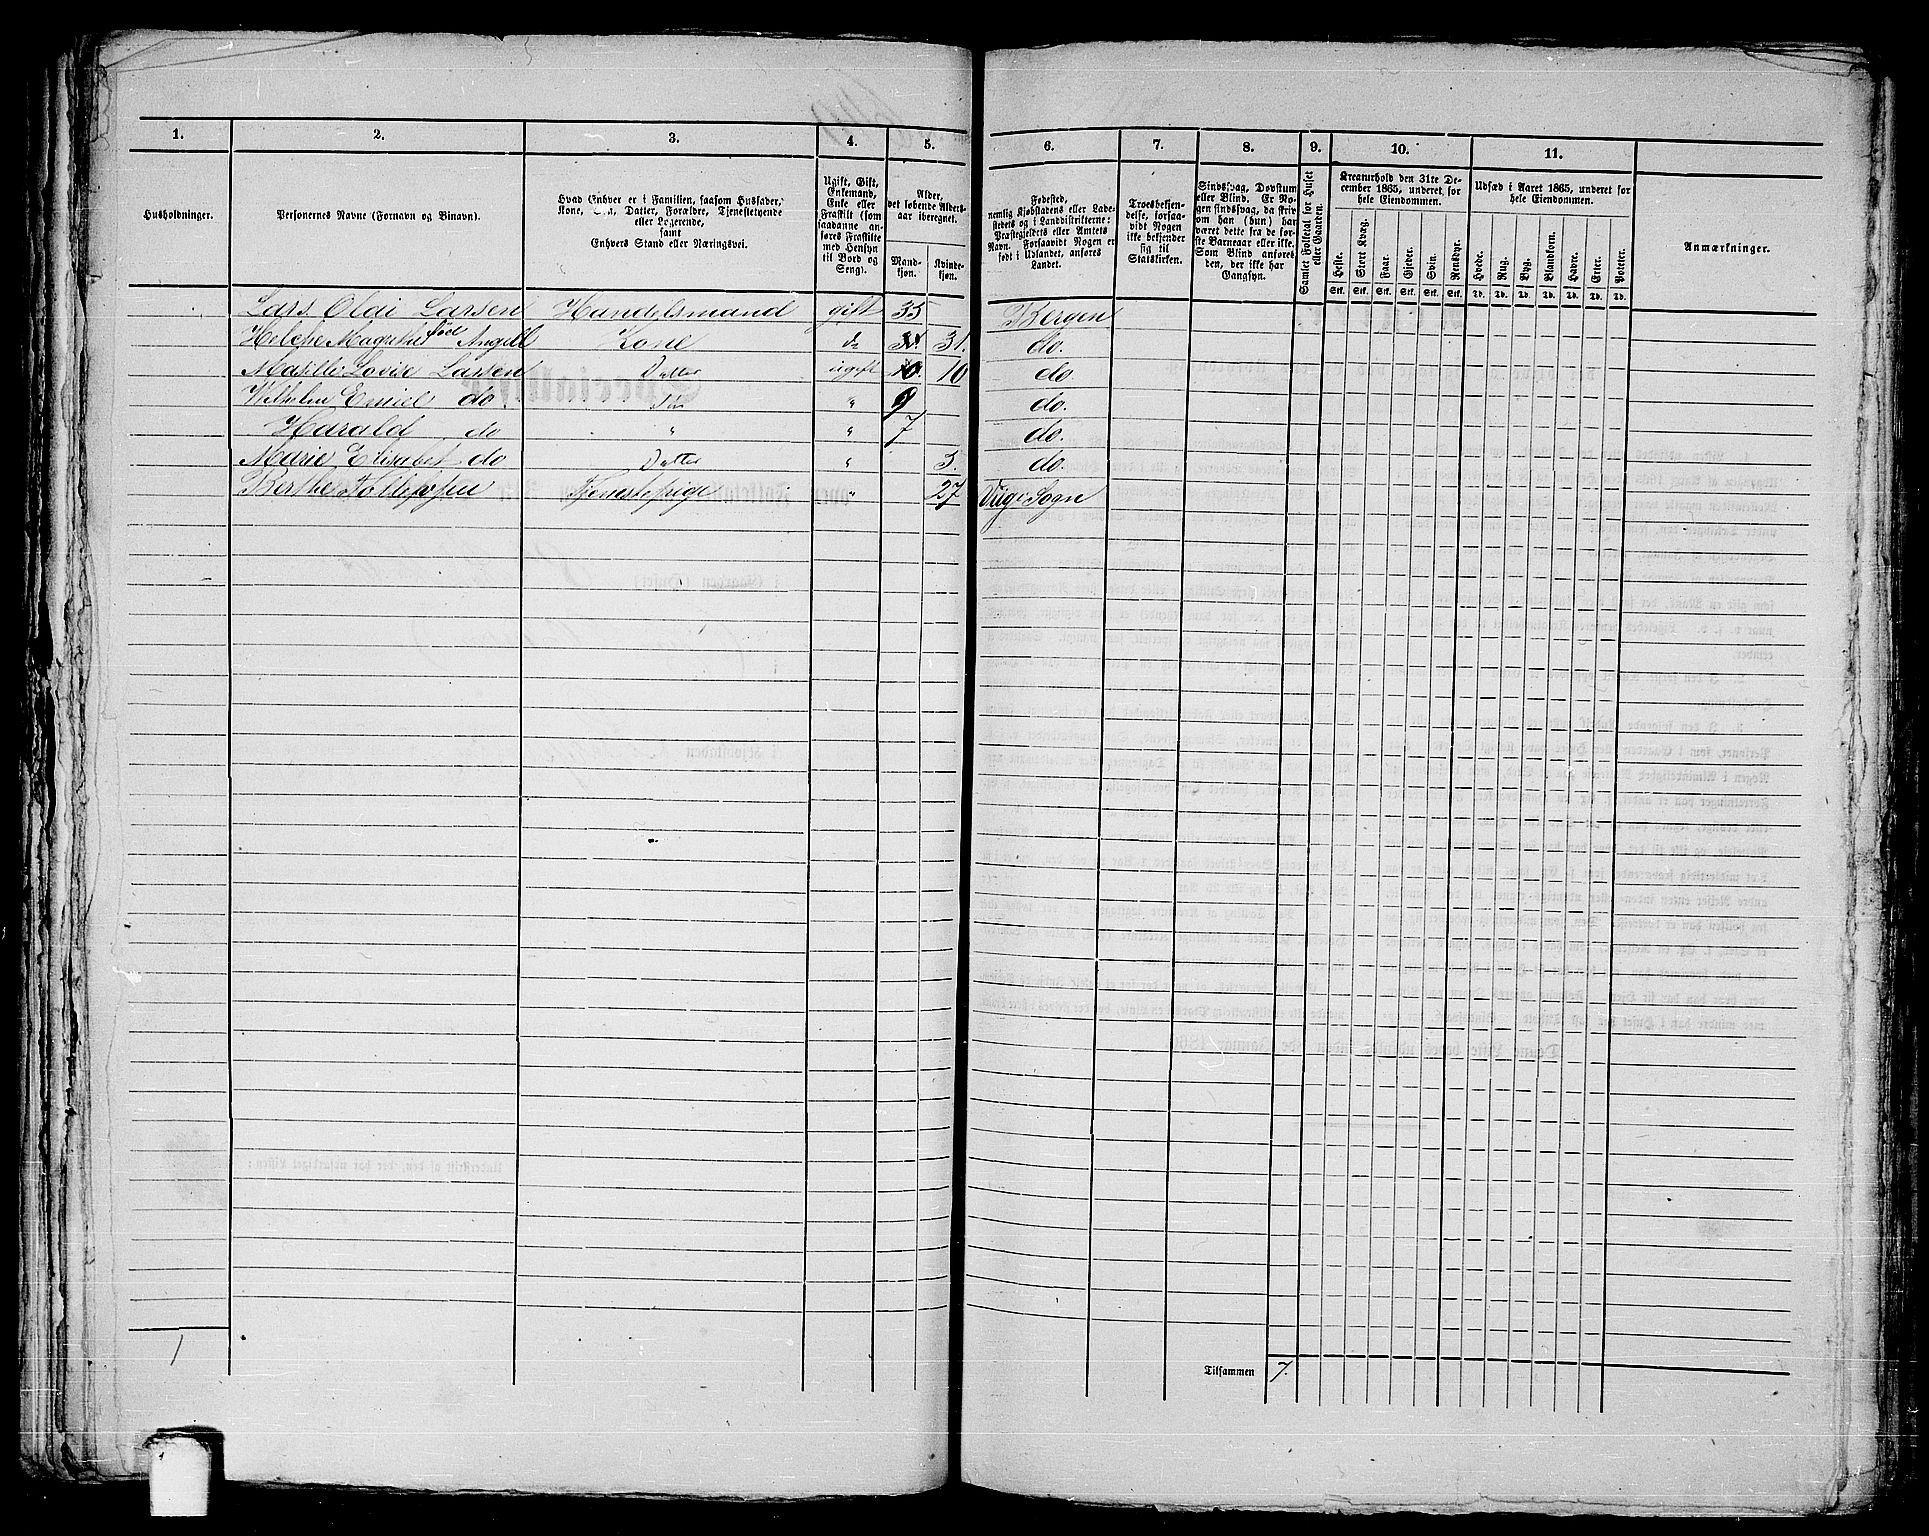 1. 2. 3. 4. 5. 6. 7. 8. 9. 10. 11.
Husholdninger.
Personernes Navne (Fornavn og Binavn).
Hvad Enhver er i Familien, saasom Husfader,
Kone, Søn, Datter, Forældre, Tjenestetyende
eller Logerende,
samt
Enhvers Stand eller Næringsvei.
Ugift, Gift,
Enkemand,
Enke eller
Fraskilt (som
saadanne an-
føres Fraskilte
med Hensyn
til Bord og
Seng).
Alder,
det løbende Alders-
aar iberegnet.
Mand-
kjøn.
Kvinde-
kjøn.
Fødested,
nemlig Kjøbstadens eller Lade-
stedets og i Landdistrikterne:
Præstegjeldets eller Amtets
Navn. Forsaavidt Nogen er
født i Udlandet, anføres
Landet.
Troesbekjen-
delse, forsaa-
vidt Nogen
ikke bekjender
sig til
Statskirken.
Sindssvag, Døvstum
eller Blind. Er No-
gen sindssvag, da skriv
om han (hun) har
været dette fra de før-
ste Barneaar eller ikke.
Som Blind anføres
den, der ikke har
Gangsyn.
Samlet Folketal for Huset
eller Gaarden.
Kreaturhold den 31te De-
cember 1865, underet, for
hele Eiendommen.
Heste. Stort Kvæg. Faar. Gjeder. Svin. Rensdyr.
Stk. Stk. Stk. Stk. Stk. Stk.
Udsæd i Aaret 1865, underet for
hele Eiendommen.
Hvede. Rug. Byg. Blandkorn. Havre. Erter. Poteter.
Td. Td. Td. Td. Td. Td. Td.
Anmærkninger.
Lars Olai Larsen Handelsmand gift 35 Bergen
Helche Magrethe født Angell Kone do 31. do.
Matille Lovise Larsen Datter ugift 10 do.
Wilhelm Emiel do Søn " 9 do.
Harald do " " 7 do.
Marie Elisabet do Datter " 3. do.
Berthe Tjenestepige " 27 Sogn
1
Tilsammen 7.